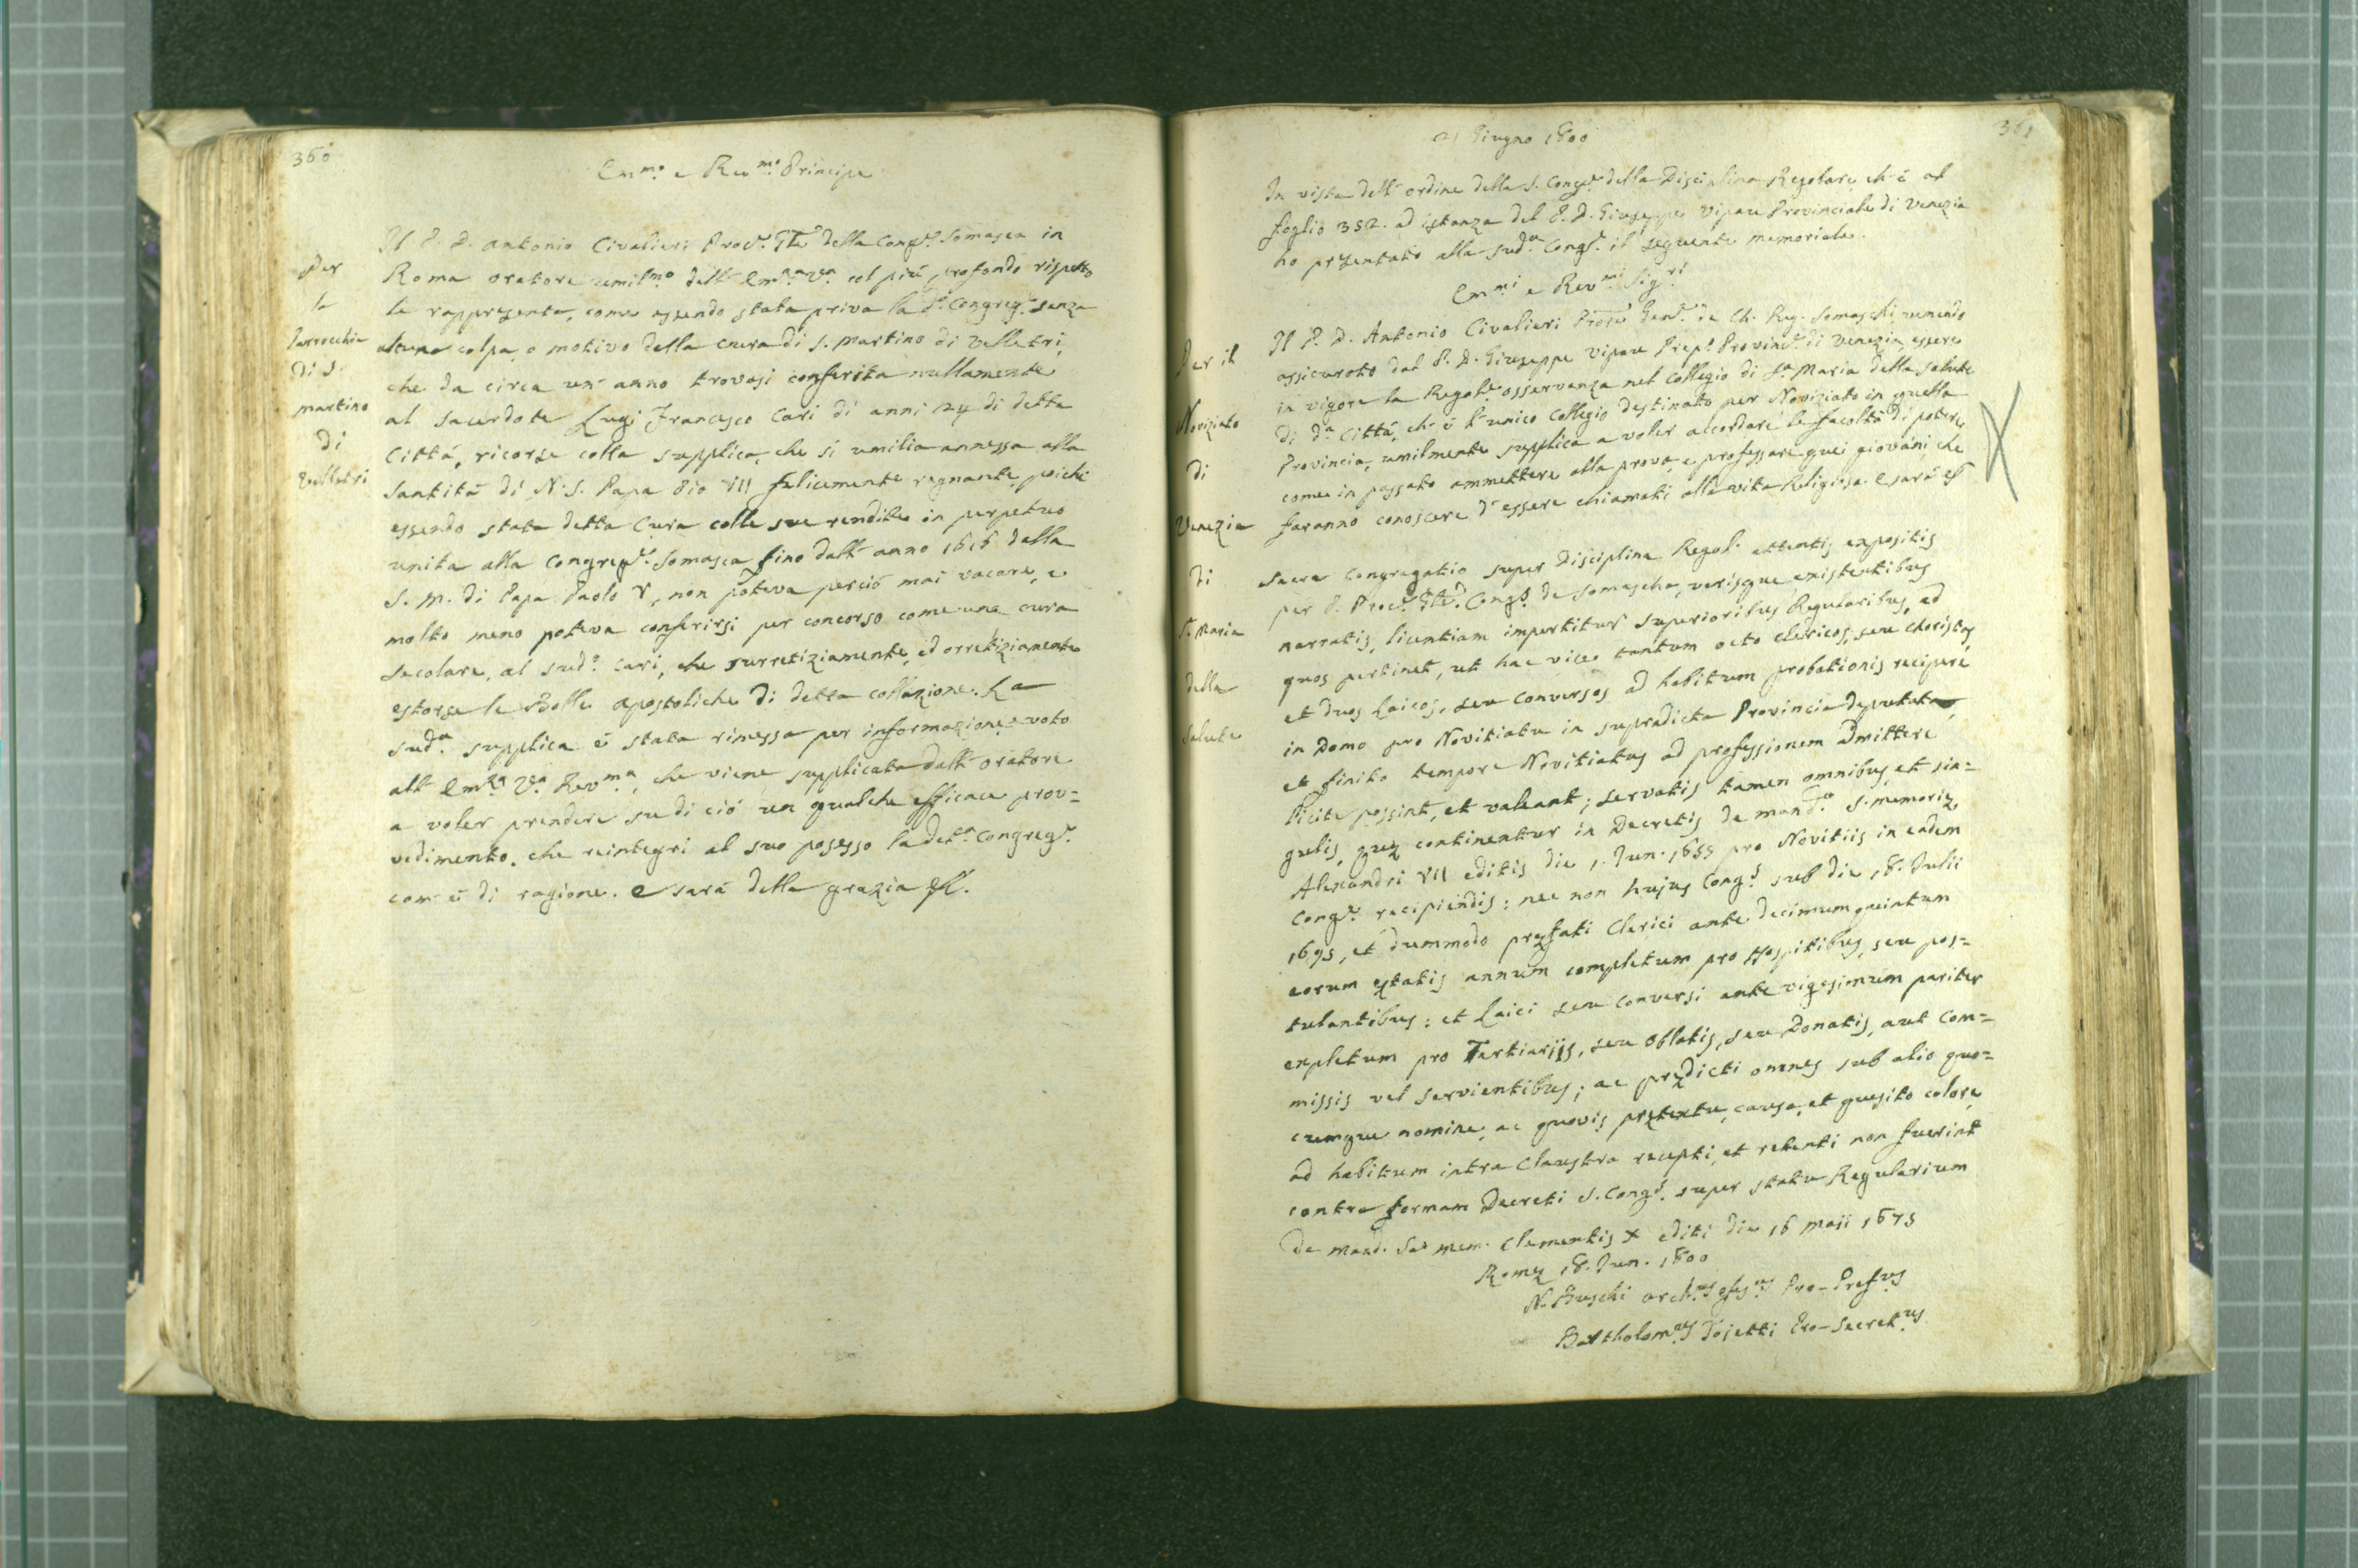 360
Em.mo e Rev.mo Principe
Per
la
Parrocchia
di S.
Martino
di
Velletri
Il P. D. Antonio Civalieri Proc.r Gĕle della Cong.ne Somasca in
Roma oratore umil.mo dell' Em.za V.a col più profondo rispetto
le rappresenta, come essendo stata priva la d.a Congreg.ne senza
alcuna colpa, o motivo della cura di S. Martino di Velletri,
che da circa un' anno trovasi conferita nullamente
al Sacerdote Luigi Francesco Cari di anni 24 di detta
Città, ricorse colla supplica, che si umilia annessa alla
Santità di N. S. Papa Pio VII felicemente regnante, poichè
essendo stata detta Cura colle sue rendite in perpetuo
unita alla Congreg.ne Somasca fino dall' anno 1616 dalla
S. M. di Papa Paolo V, non poteva perciò mai vacare, e
molto meno poteva conferirsi per concorso come una cura
secolare, al sud.o Cari, che surretiziamente, ed orretiziamente
estorse le Bolle apostoliche di detta collazione. La
sud.a supplica è stata rimessa per informazione, e voto
all' Em.za V.a Rev.ma, che viene supplicata dall' oratore
a voler prendere su di ciò un qualche efficace prov=
vedimento, che reintegri al suo possesso la det.a Congreg.ne
com' è di ragione. E sarà della grazia &c.
361
21 Giugno 1800
In vista dell' ordine della S. Cong.ne della Disciplina Regolare, ch' è al
foglio 352. ad istanza del P. D. Giuseppe Vipau Provinciale di Venezia
ho presentato alla sud.a Cong.ne il seguente memoriale.
Em.mi e Rev.mi Sig.ri
Per il
Noviziato
di
Venezia
di
S.a Maria
della
Salute
Il P. D. Antonio Civalieri Proc.re Gen.le de Ch. Reg. Somaschi venendo
assicurato dal P. D. Giuseppe Vipau Prep.to Provinc.le di Venezia, essere
in vigore la Regol.e osservanza nel Collegio di S.a Maria della Salute
di d.a Città, ch' è l' unico Collegio destinato per Noviziato in quella
Provincia, umilmente supplica a voler accordare le facoltà di potere
come in passato ammettere alla prova, e professare quei giovani, che
faranno conoscere d' essere chiamati alla vita Religiosa. E sarà &c
Sacra Congregatio super Disciplina Regol. attentis expositis
per P. Proc.m Gĕlem Cong.nis de Somascha, verisque existentibus
narratis, licentiam impertitur Superioribus Regularibus, ad
quos pertinet, ut hac vice tantum octo clericos, seu choristas,
et duos Laicos, seu Conversos ad habitum probationis recipere
in Domo pro Novitiatu in supradicta Provincia deputata,
et finito tempore Novitiatus ad professionem admittere
licite possint, et valeant; servatis tamen omnibus, et sin=
gulis, quæ continentur in Decretis de mand.to S. memoriæ
Alexandri VII editis die 1. Jun. 1655 pro Novitiis in eadem
Cong.ne recipiendis: nec non hujus Cong.nis sub die 18. Julii
1695, et dummodo præfati Clerici ante decimum quintum
eorum ætatis annum completum pro Hospitibus, seu pos=
tulantibus; et Laici seu Conversi ante vigesimum pariter
expletum pro Tertiariis, seu Oblatis, seu Donatis, aut Com=
missis vel Servientibus; ac prædicti omnes sub alio quo=
cumque nomine, ac quovis prætextu, causa, et quesito colore,
ad habitum intra Claustra recepti, et retenti non fuerint
contra formam Decreti S. Cong.nis super statu Regularium
de mand. Sa: mem. Clementis X editi die 16 Maii 1675
Romæ 18. Jun. 1800
N. Buschi Arch.us Pro-Præf.us
Bartholom.us Tojetti Pro-Secret.us